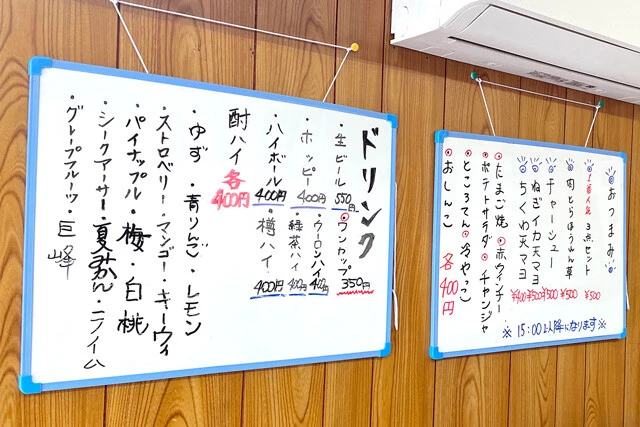 ドリンク
・生ビール 550円
◎ワンカップ 350円
・ホッピー 400円
・ウーロンハイ 400
・緑茶ハイ 400円
・ハイボール 400円
・樽ハイ 400円
酎ハイ 各400円
・ゆず ・青りんご・レモン
・ストロベリー・マンゴー・キーウィ
・パイナップル・梅・白桃
・シークアーサー・夏みかん・
・グレープフルーツ・巨峰
おつまみ
1番人気 3点セット ¥500
肉とほうれん草 ¥500
チャーシュー ¥500
ねぎイカ天マヨ ¥500
ちくわ天マヨ ¥400
◎たまご焼 ◎赤ウインナー
◎ポテトサラダ ◎チャンジャ
◎ところてん ◎冷やっこ
◎おしんこ 各400円
※15:00以降になります※